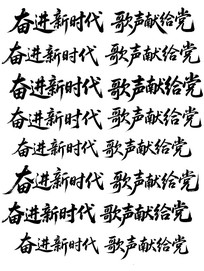 奋进新时代 歌声献给党
奋进新时代 歌声献给党
奋进新时代 歌声献给党
奋进新时代 歌声献给党
奋进新时代 歌声献给党
奋进新时代 歌声献给党
奋进新时代 歌声献给党
奋进新时代 歌声献给党